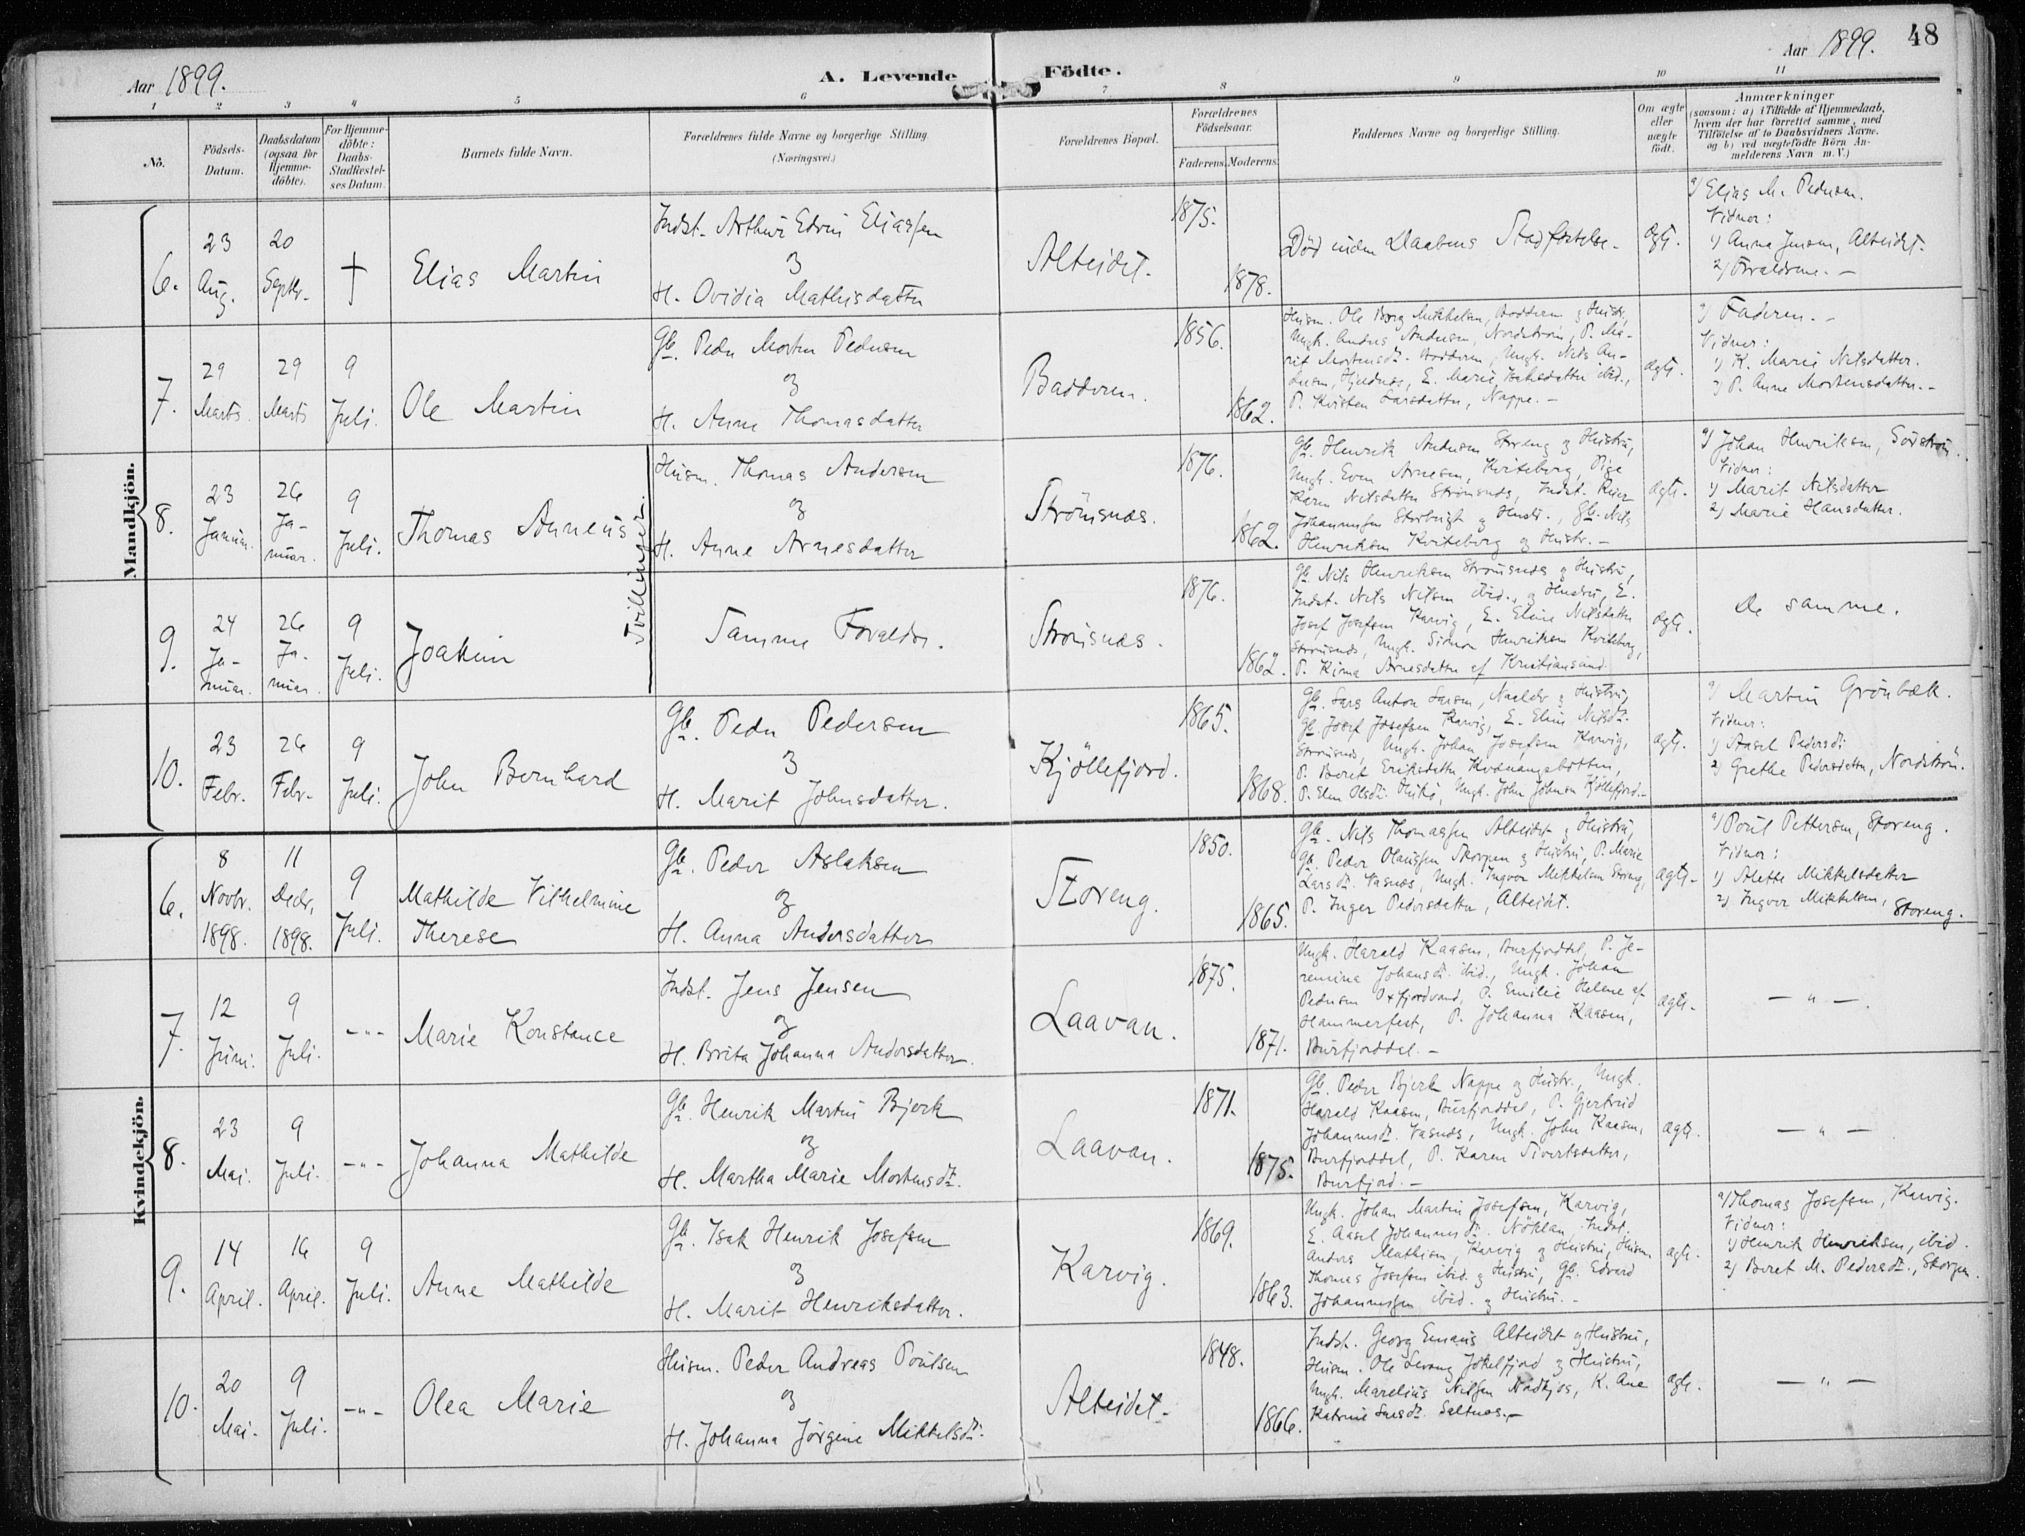 Aar 1899.
A. Levende Födte.
Aar 1899. 48
1 2 3 4 5 6 7 8 9 10 11
No.
Födsels-
Datum.
Daabsdatum
(ogsaa for
Hjemme-
döbte).
For Hjemme-
döbte:
Daabs-
Stadfæstel-
ses Datum.
Barnets fulde Navn.
Forældrenes fulde Navne og borgerlige Stilling.
(Næringsvei.)
Forældrenes Bopæl.
Forældrenes
Födselsaar.
Faderens. Moderens.
Faddernes Navne og borgerlige Stilling.
Om ægte
eller
uægte
födt.
Anmærkninger
(saasom: a) i Tilfælde af Hjemmedaab,
hvem der har forrettet samme, med
Tilföielse af to Daabsvidners Navne.
og b) ved uægtefödte Börn An-
melderens Navn m. V.)
Mandkjön.
6.
23
Aug.
20
Septbr.
†
Elias Martin
Indst. Arthur Edvin Eliassen
&
H. Ovidia Mathisdatter
Alteidet.
1875.
1878.
Död inden Daabens Stadfæstelse.
ægte.
a) Elias M. Pedersen.
Vidner:
1) Anna Jensen, Alteidet.
2) Forældrene. –
7.
29
Marts.
29
Marts
9
Juli.
Ole Martin
Gb. Peder Morten Pedersen
&
H. Anne Thomasdatter
Badderen.
1856.
1862.
Husm. Ole Borg Mikkelsen, Badderen & Hustr.,
Ungk. Anders Andersen, Nordström, P. Ma-
rit Mortensdt. Badderen, Ungk. Nils An-
dersen, E. Marie Isaksdatter ibid.,
P. Kirsten Larsdatter, Nappe. –
ægte.
a) Faderen. –
Vidner:
1) K. Marie Nilsdatter.
2) P. Anne Mortensdatter. –
8.
23
Januar.
26
Ja-
nuar.
9
Juli.
Thomas Anneus
Tvillinger.
Husm. Thomas Andersen
&
H. Anne Arnesdatter
Strömsnes.
1876.
1862.
Gb. Henrik Andersen Storeng & Hustru,
Ungk. Even Arnesen, Kviteberg, Pige
Karen Nilsdatter Strömsnes, Indst. Peier
Johannessen Storbugt & Hustr., Gb. Nils
Henriksen Kviteberg & Hustr. –
ægte.
a) Johan Henriksen, Sörström.
Vidner:
1) Marit Nilsdatter
2) Marie Hansdatter.
9.
24
Ja-
nuar.
26
Ja-
nuar.
9
Juli.
Joakim
Samme Forældre.
Strömsnes.
1876.
1862.
Gb. Nils Henriksen Strömsnes & Hustru,
Indst. Nils Nilsen ibid., & Hustru, E.
Josef Josefsen Karvig, E. Eline Nilsdatter
Strömsnes, Ungk. Simon Henriksen Kviteberg,
P. Kirna Arnesdatter af Kristiansund.
ægte.
De samme.
10.
23
Febr.
26
Febr.
9
Juli.
John Bernhard
Gb. Peder Pedersen
&
H. Marit Johnsdatter.
Kjöllefjord.
1865.
1868.
Gb. Lars Anton Larsen, & Hustru,
Gb. Josef Josefsen Karvig, E. Eline Nilsdt.
Strömsnes, Ungk. Johan Josefsen Karvig,
P. Berit Eriksdatter Kvænangsbotten,
P. Elen Olsdt., Ungk. John Johnsen Kjöllefjord. –
ægte.
a) Martin Grönbæk.
Vidner:
1) Aasel Pedersdt.
2) Grethe Pedersdatter, Nordström.
Kvindekjön.
6.
8
Novbr.
1898.
11
Decbr.
1898.
9
Juli.
Mathilde Vilhelmine
Therese
Gb. Peder Aslaksen
&
H. Anna Andersdatter
Storeng.
1850.
1865.
Gb. Nils Thomassen Alteidet & Hustru,
Gb. Peder Olaussen Skorpen & Hustru, P. Marie
Larsdt. Vasnes, Ungk. Ingvor Mikkelsen Storeng,
P. Inger Pedersdatter, Alteidet.
ægte.
a) Poul Pettersen, Storeng.
Vidner:
1) Alette Mikkelsdatter
2) Ingvor Mikkelsen,
Storeng.
7.
12
Juni.
9
Juli.
– " –
Marie Konstance
Indst. Jens Jensen
&
H. Brita Johanna Andersdatter.
Laavan.
1875.
1871.
Ungk. Harald Kaasen, Burfjorddel, P. Je-
remina Johansdt. ibid., Ungk. Johan
Pedersen Oxfjordvand, P. Emilie Helene af
Hammerfest, P. Johanna Kaasen,
Burfjorddel. –
ægte.
– " –.
8.
23
Mai.
9
Juli.
– " –
Johanna Mathilde
Gb. Henrik Martin Bjerk
&
H. Martha Marie Mortensdt.
Laavan.
1871.
1875.
Gb. Peder Bjerk Nappe & Hustr., Ungk.
Harald Kaasen, Burfjorddel, P. Gjertrud
Johannesdt. Vasnes, Ungk. John Kaasen,
Burfjorddel, P. Karen Sivertsdatter,
Burfjord. –
ægte.
– " –
9.
14
April.
16
April.
9
Juli.
Anne Mathilde
Gb. Isak Henrik Josefsen
&
H. Marit Henriksdatter.
Karvig.
1869.
1863.
Ungk. Johan Martin Josefsen, Karvig,
E. Aasel Johannesdt. Nöklan, Indst.
Anders Mathisen, Karvig & Hustru, Husm.
Thomas Josefsen ibid. & Hustru, Gb. Edvard
Johannessen ibid. & Hustru. –
ægte.
a) Thomas Josefsen, Karvig.
Vidner:
1) Henrik Henriksen, ibid.
2) Beret M. Pedersdt., Skorpen.
10.
20
Mai.
9
Juli.
– " –
Olea Marie
Husm. Peder Andreas Poulsen
&
H. Johanna Jörgine Mikkelsdt.
Alteidet.
1848.
1866.
Indst. Georg Emaus Alteidet & Hustru,
Husm. Ole Levang Jökelfjord & Hustru,
Ungk. Marelius Nilsen, K. Ane
Katrine Larsdt. Saltnes. –
ægte.
– " –